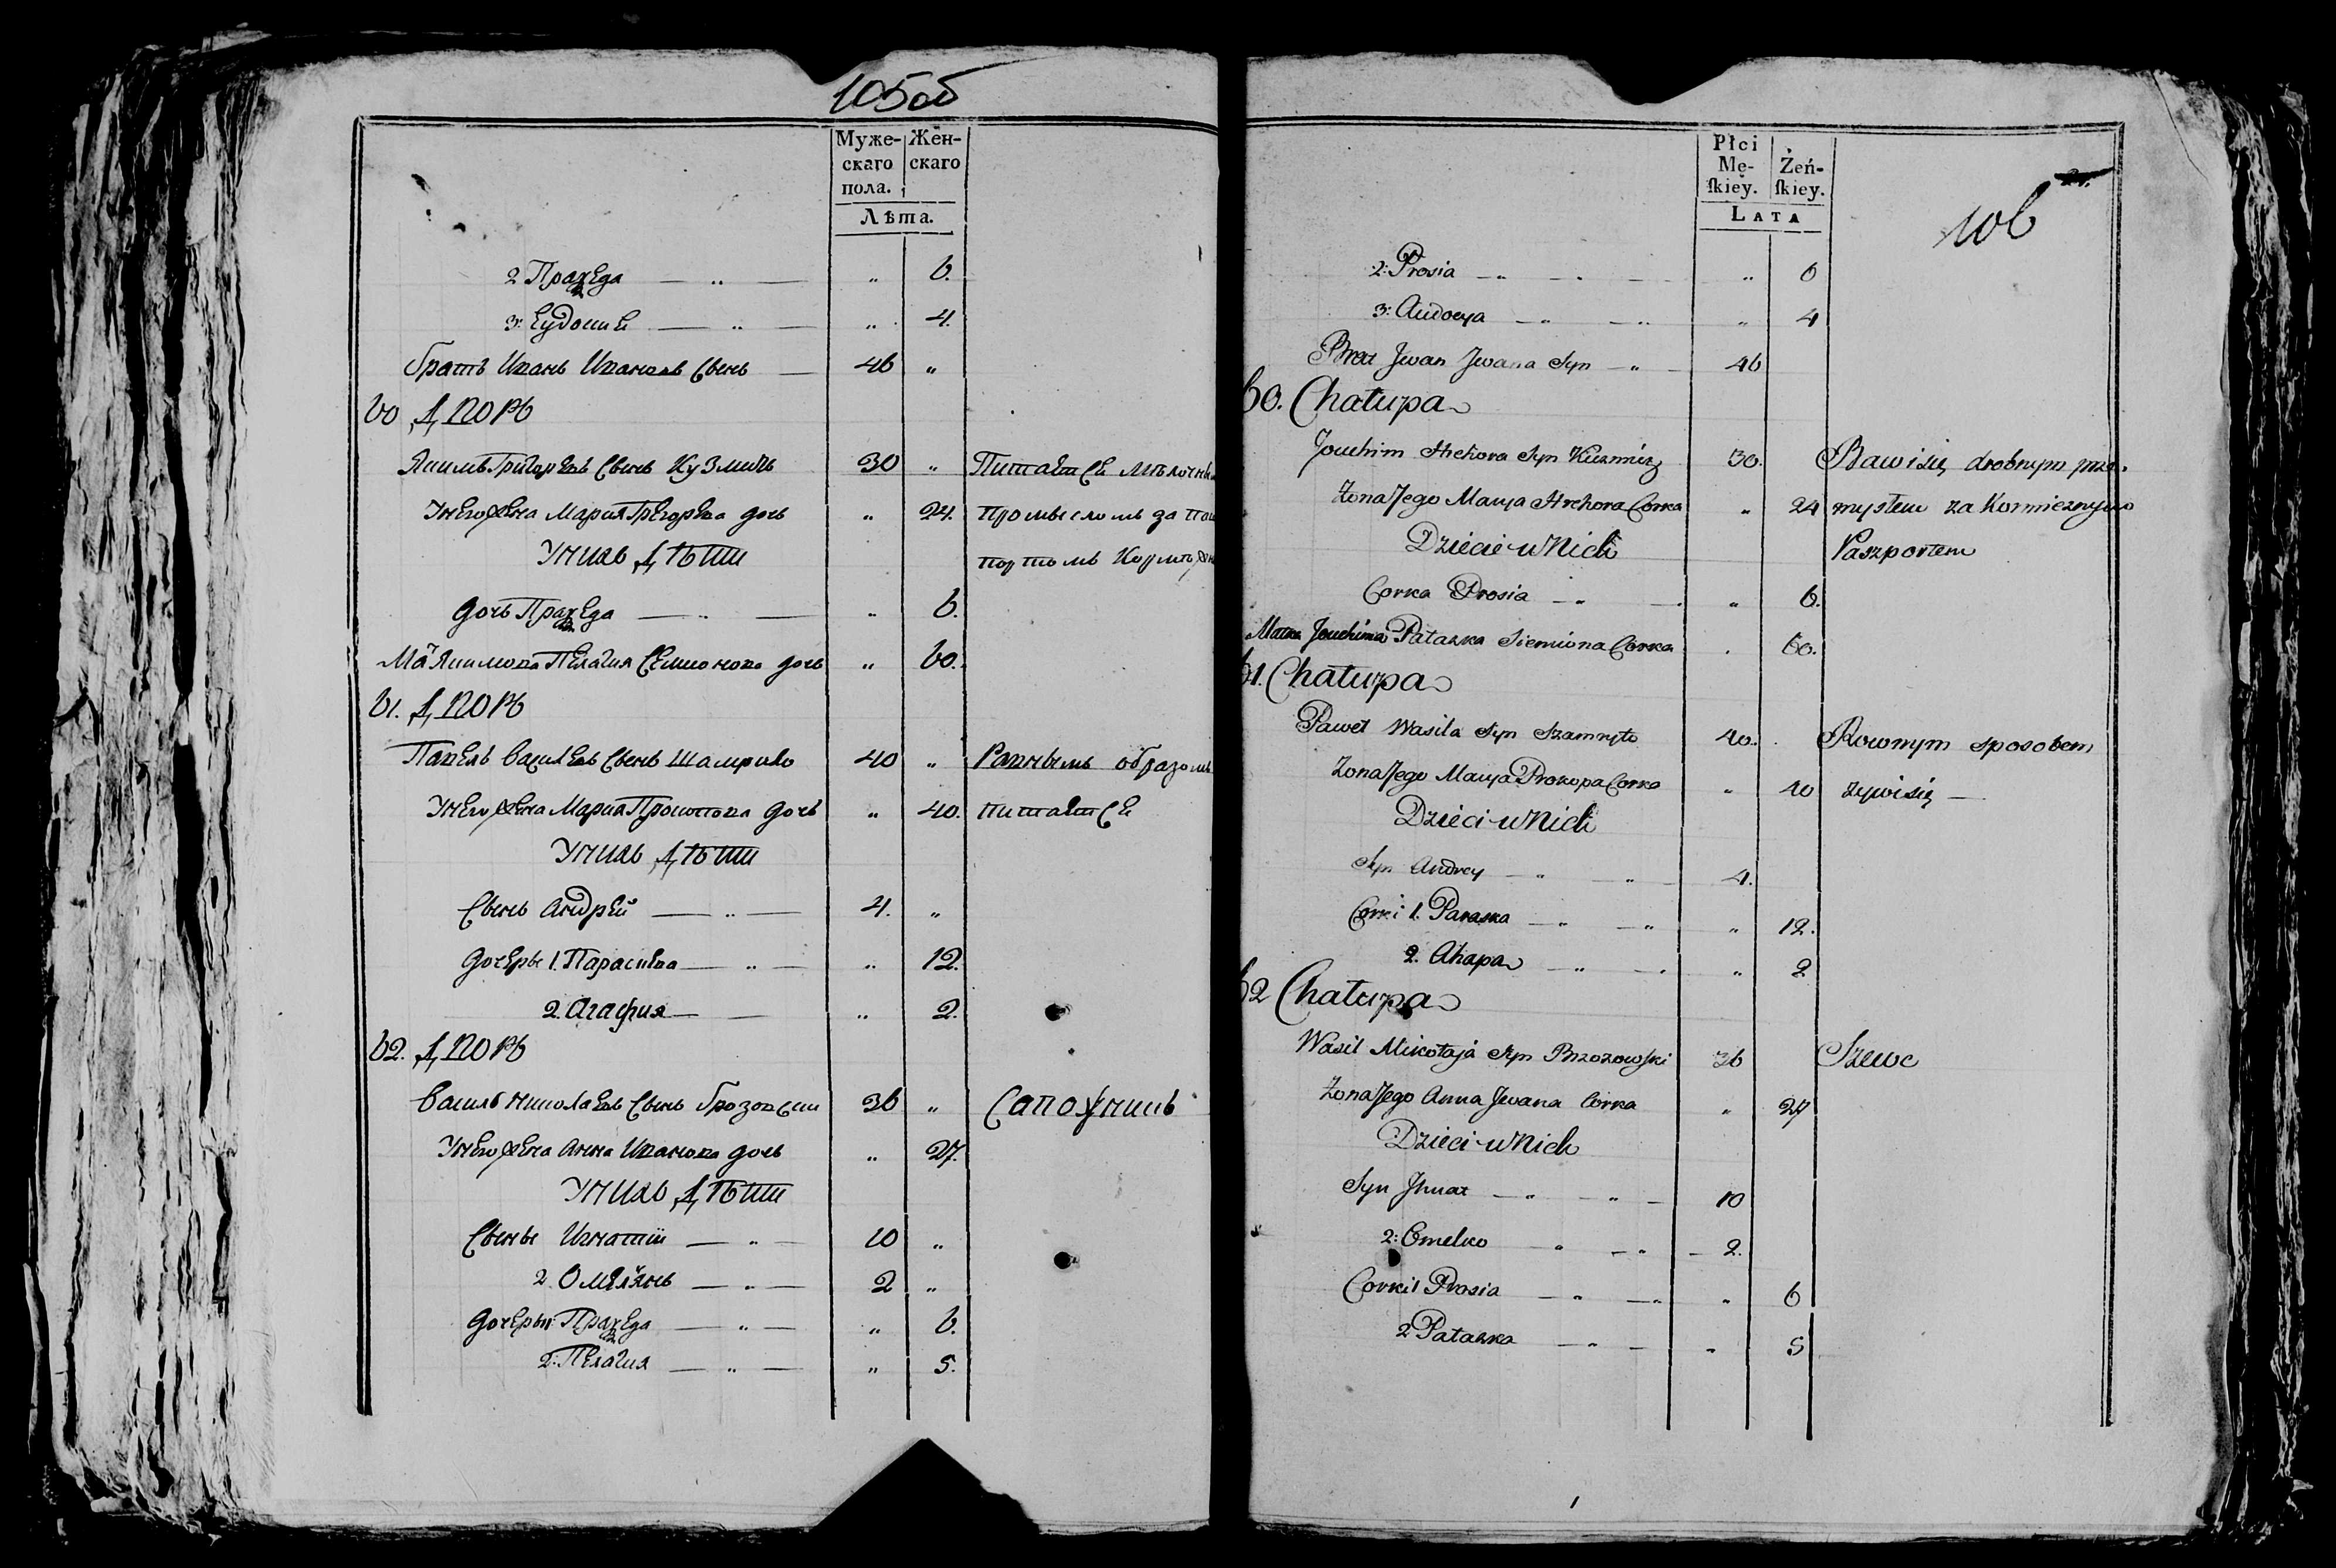 105об
Муже-
скаго
пола.
Жен-
скаго
Лѣта.
2 Пражеда — „ — „ 6.
3: Еудокия — „ — „ 4.
братъ Иванъ Ивановъ Сынъ — 46 „
60 Дворъ
Якимъ Григорьевъ Сынъ Кузмичъ 30 „ Питается мелочнымъ
У него жена Мария Григорьева дочь „ 24. промысломъ за пас
У нихъ Дѣти портомъ
дочь Пражеда — „ — „ 6.
Мать Якимова Пелагия Семионова дочь „ 60.
61. Дворъ
Павелъ Василевъ Сынъ Шамрило 40 „ Равнымъ образомъ
У него жена Мария Прокопова дочь „ 40. питается
У нихъ Дѣти
Сынъ Андрей — „ — 4. „
дочеры 1. Парасиева — „ — „ 12.
2. Агафия — — „ 2.
62. Дворъ
Василь Николаевъ Сынъ Брозовски 36 „ Сапожникъ
У него жена Анна Иванова дочь „ 27.
У нихъ Дѣти
Сыны Игнатии — „ — 10 „
2. Омелянъ — „ — 2 „
дочеры Пражеда — „ — „ 6.
2: Пелагия — „ — „ 5.
106
Płci
Mę-
ſkiey.
Żeń-
ſkiey.
LATA
2: Prosia — „ — „ 6
3: Audocya — „ — „ 4
Brat Jwan Jwana Syn — „ 46
60. Chałupa
Jouchim Hrehora Syn Kuzmicz 30. Bawi się drobnym prze-
Żona Jego Marya Hrehora Corka „ 24 mysłem za
Dziecie w Nich Paszportem
Corka Prosia — „ „ 6.
Matka Jouchima Pałazka Siemiona Corka . 60.
61. Chałupa
Paweł Wasila Syn Szamryło 40. Rownym sposobem
Żona Jego Marya Prokopa Corka „ 40 żywi się —
Dzieci w Nich
Syn Andrey — „ „ — 4.
Corki 1. Paraska — „ — „ „ 12.
2. Ahapa — „ — „ „ 2
62 Chałupa
Wasil Mikołaja Syn Brzozowſki 36 Szewc
Żona Jego Anna Jwana Corka „ 27
Dzieci w Nich
Syn Jhnat — „ — „ — 10
2: Omelko „ — „ — 2.
Corki 1 Prosia — „ — „ „ 6
2 Pałazka — „ — „ 5